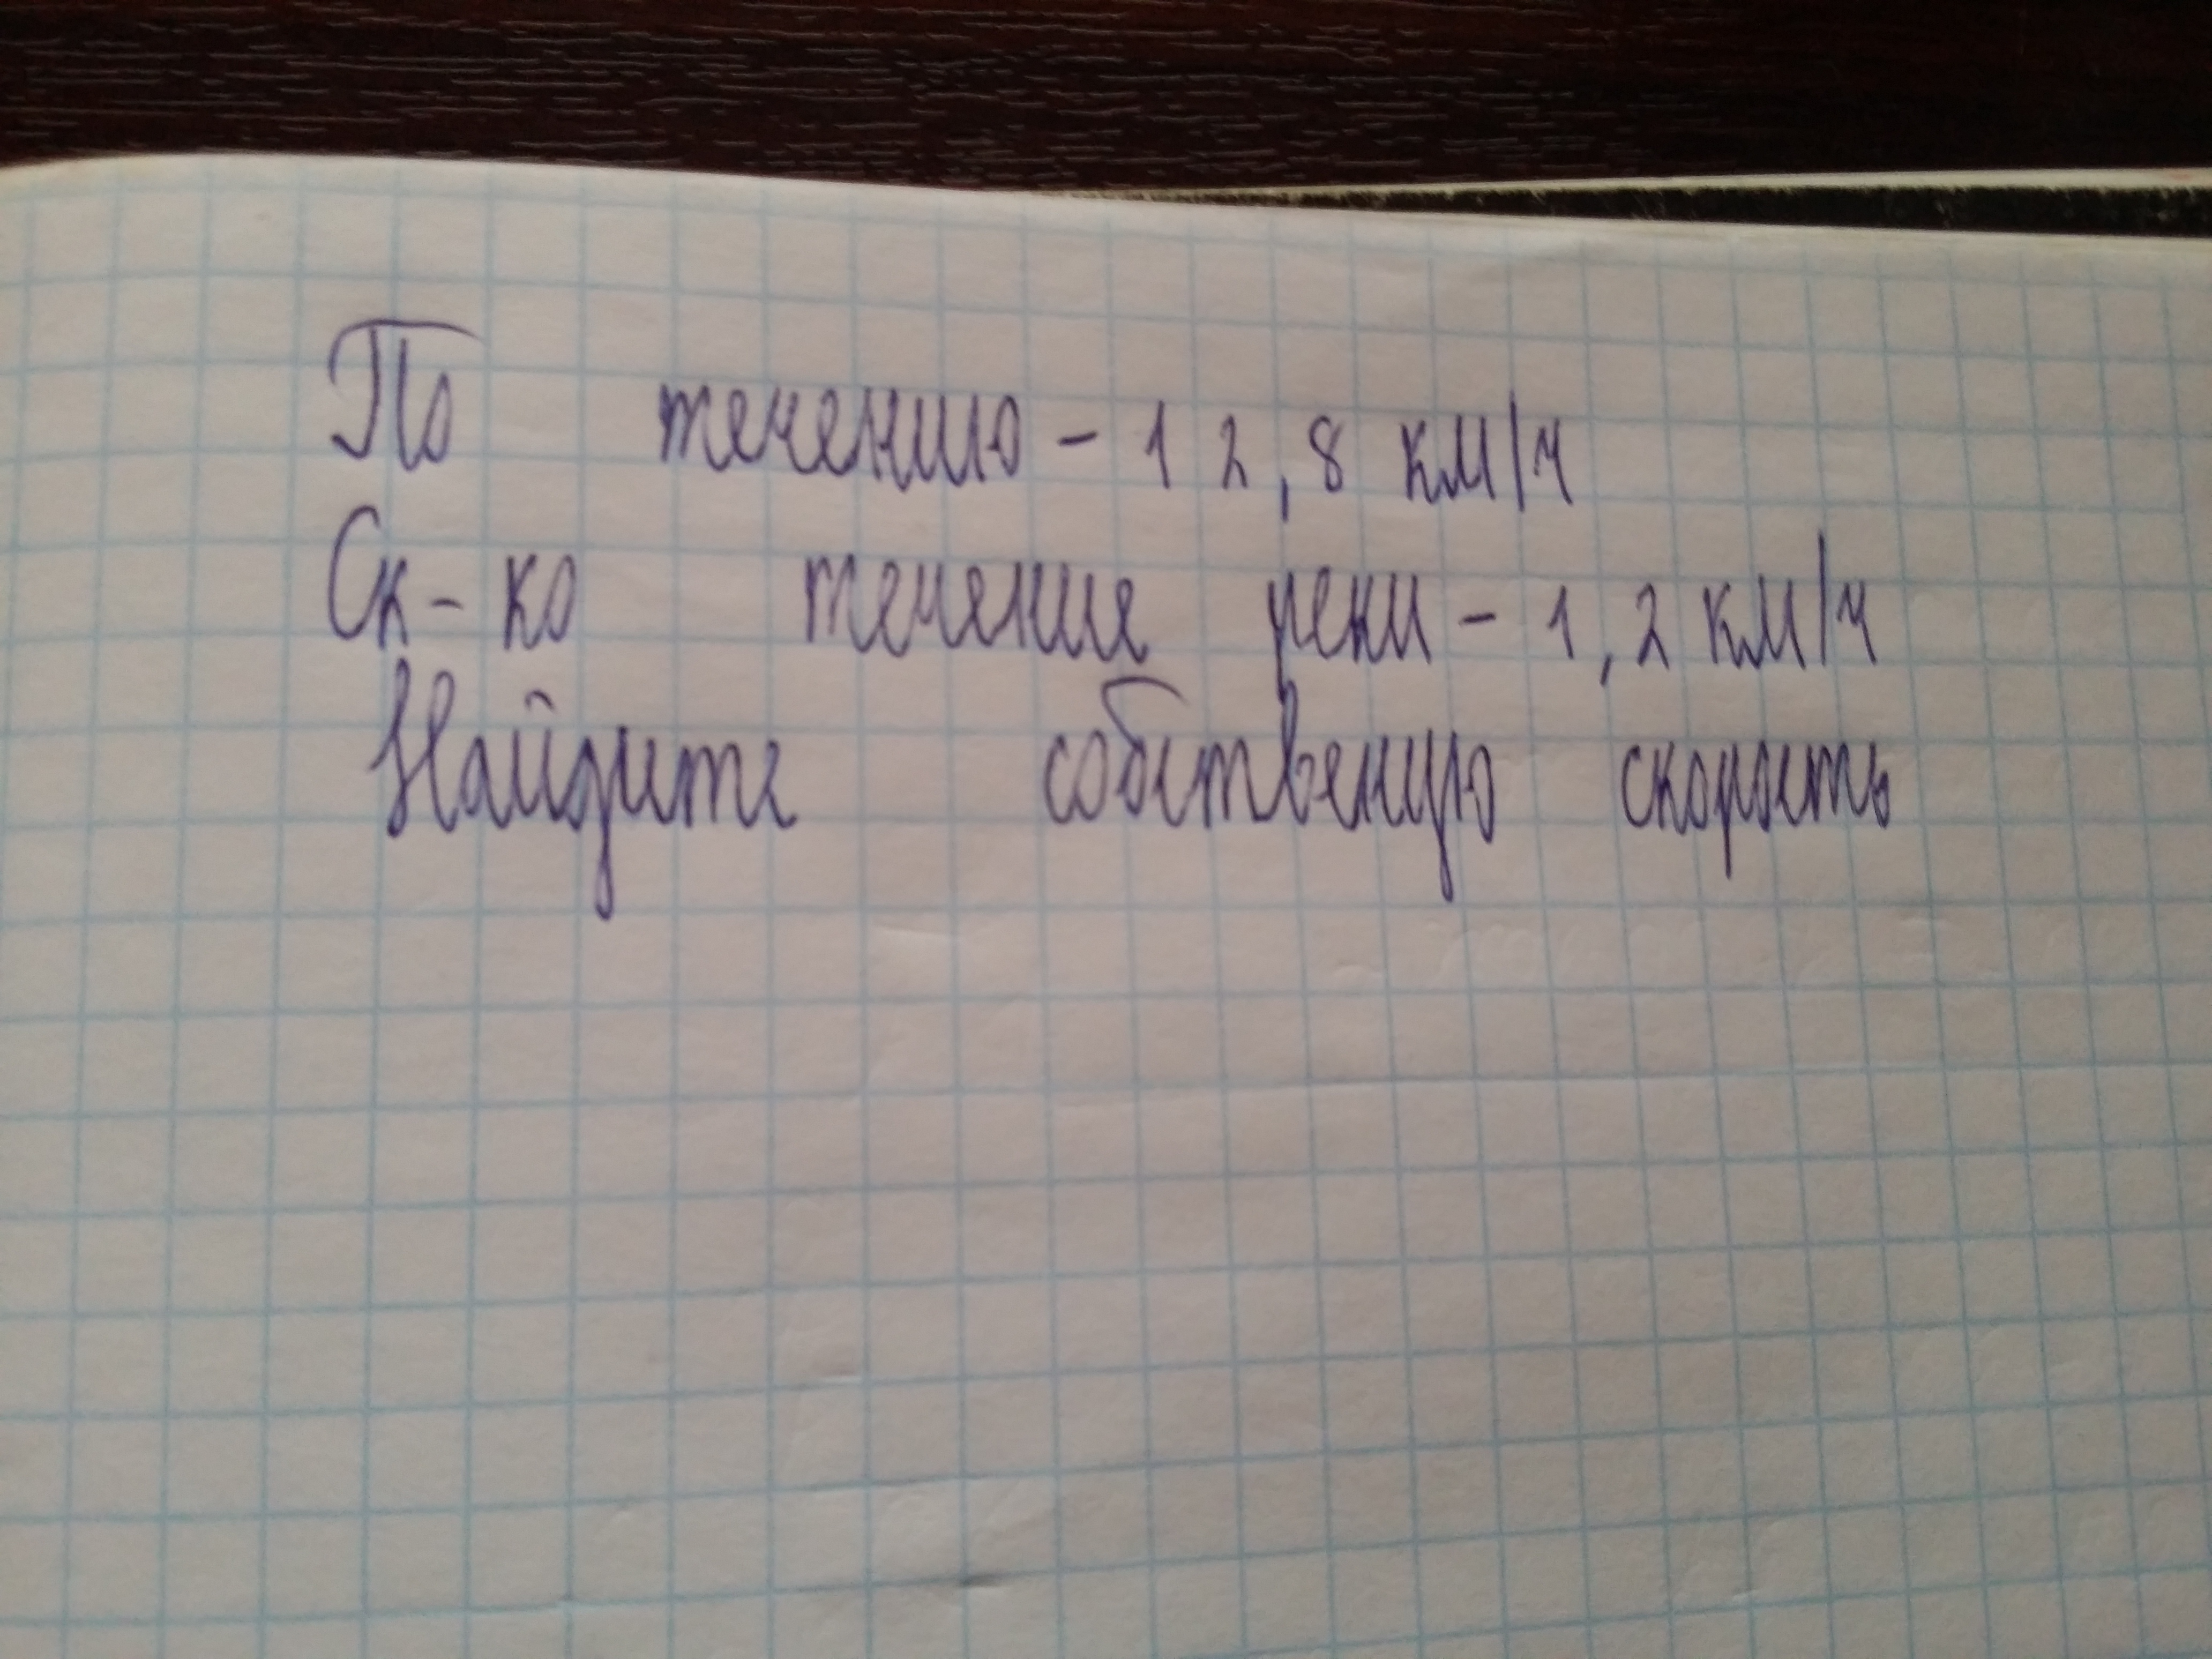 По течению - 12,8 км/ч
Ск-ко течение реки - 1,2 км/ч
Найдите собственую скорость